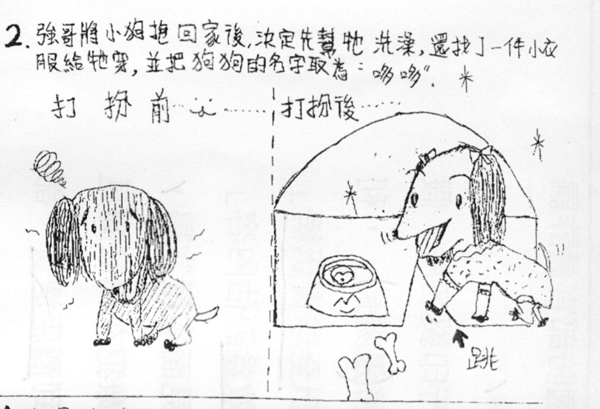 2. 強哥將小狗抱回家後,決定先幫牠洗澡,還找了一件小衣
服給牠穿,並把狗狗的名字取為:"哆哆".
打扮前……
打扮後……
跳